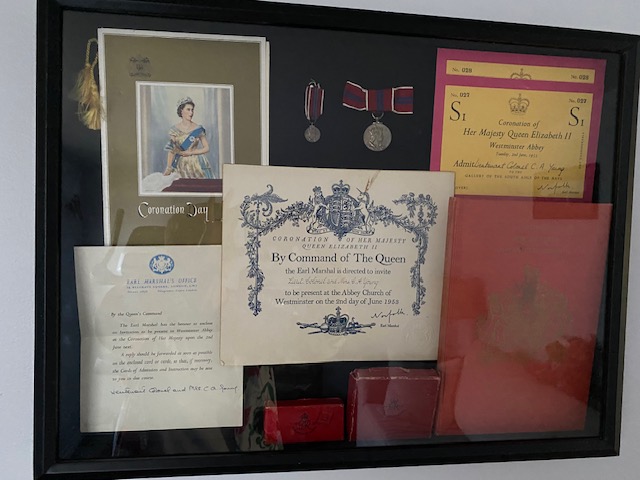 Coronation Day
No. 028
No. 028
No. 027
No. 027
S1
S1
Coronation of
Her Majesty Queen Elizabeth II
Westminster Abbey
Tuesday, 2nd June, 1953
Admit Lieutenant Colonel C. A. Young
Norfolk
CORONATION OF HER MAJESTY
QUEEN ELIZABETH II
By Command of The Queen
the Earl Marshal is directed to invite
Lieut. Colonel and Mrs C A Young
to be present at the Abbey Church of
Westminster on the 2nd day of June 1953
Norfolk
Earl Marshal
EARL MARSHAL'S OFFICE
By the Queen's Command
The Earl Marshal has the honour to enclose
an Invitation to be present in Westminster Abbey
at the Coronation of Her Majesty upon the 2nd
June next.
A reply should be forwarded as soon as possible
on the enclosed card so that, if necessary,
the Cards of Admission and Instruction may be sent
to you in due course.
Lieutenant Colonel and Mrs C. A. Young